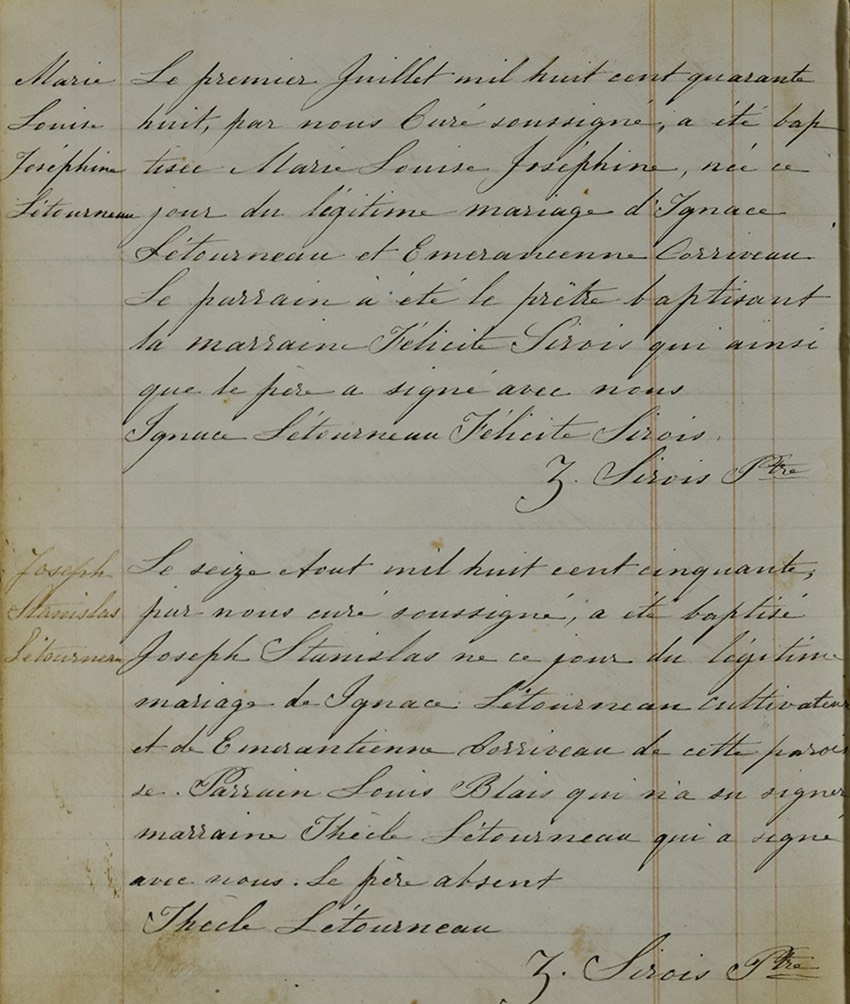 Marie
Louise
Joséphine
Létourneau
Le premier Juillet mil huit cent quarante
huit, par nous Curé soussigné, a été bap
tisée Marie Louise Joséphine, née ce
jour du légitime mariage d'Ignace
Létourneau et Emerancienne Corriveau
Le parrain à été le prêtre baptisant
la marraine Félicité Sirois qui ainsi
que le père a signé avec nous
Ignace Létourneau Félicité Sirois.
Z. Sirois Ptre
Joseph
Stanislas
Létourneau
Le seize Aout mil huit cent cinquante,
par nous curé soussigné, a été baptisé
Joseph Stanislas né ce jour du légitime
mariage de Ignace Létourneau cultivateur
et de Emerantienne Corriveau de cette parois
se. Parrain Louis Blais qui n'a su signer,
marraine Thècle Létourneau qui a signé
avec nous. Le père absent
Thècle Létourneau
Z. Sirois Ptre